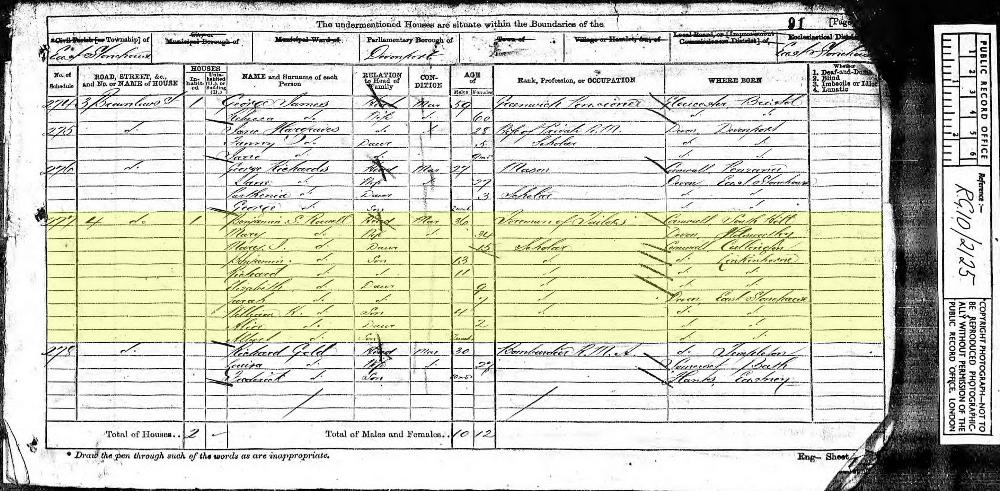 The undermentioned Houses are situate within the Boundaries of the
91 [Page
Civil Parish [or Township] of
City or Municipal Borough of
Municipal Ward of
Parliamentary Borough of
Town of
Village or Hamlet, &c., of
Local Board, or [Improvement Commissioners District] of
Ecclesiastical District of
East Stonehouse
Devonport
East Stonehouse
No. of Schedule
ROAD, STREET, &c., and No. or NAME of HOUSE
HOUSES
In-habit-ed
NAME and Surname of each Person
RELATION to Head of Family
CON-DITION
AGE of
Males
Females
Rank, Profession, or OCCUPATION
WHERE BORN
Whether
1. Deaf-and-Dumb
2. Blind
3. Imbecile or Idiot
4. Lunatic
274 1 George James Head Mar 59 Greenwich Pensioner Gloucester Bristol
Rebecca do Wife do 60 do do
275 do Jane Hargraves do 28 Wife of Private R.M. Devon Devonport
Fanny do Daur 5 Scholar do do
do do
276 do George Richards Head Mar 27 Mason Cornwall Penzance
Jane do Wife do 27 Devon East Stonehouse
Parthenia do Daur 3 Scholar do do
George do Son do do
277 4 do 1 Benjamin S. Head Mar 36 Cornwall South Hill
Mary do Wife do 34 Devon Holsworthy
Mary J. do Daur 15 Scholar Cornwall Callington
Benjamin do Son 13 do do Linkinhorne
Richard do do 11 do do do
Elizabeth do Daur 9 do do do
Sarah do do 7 do Devon East Stonehouse
William R. do Son 4 do do do
Alice do Daur 2 do do
Albert do Son do do
278 do Richard Gold Head Mar 30 Bombardier R.M.A. do Templeton
Louisa do Wife do 28 Somerset Bath
Frederick do Son Hants Eastney
Total of Houses.. 2 -
Total of Males and Females.. 10 12
* Draw the pen through such of the words as are inappropriate.
Eng— Sheet
PUBLIC RECORD OFFICE
1 2 3 4 5 6
Reference:-
RG10/2125
COPYRIGHT PHOTOGRAPH—NOT TO
BE REPRODUCED PHOTOGRAPHIC-
ALLY WITHOUT PERMISSION OF THE
PUBLIC RECORD OFFICE, LONDON